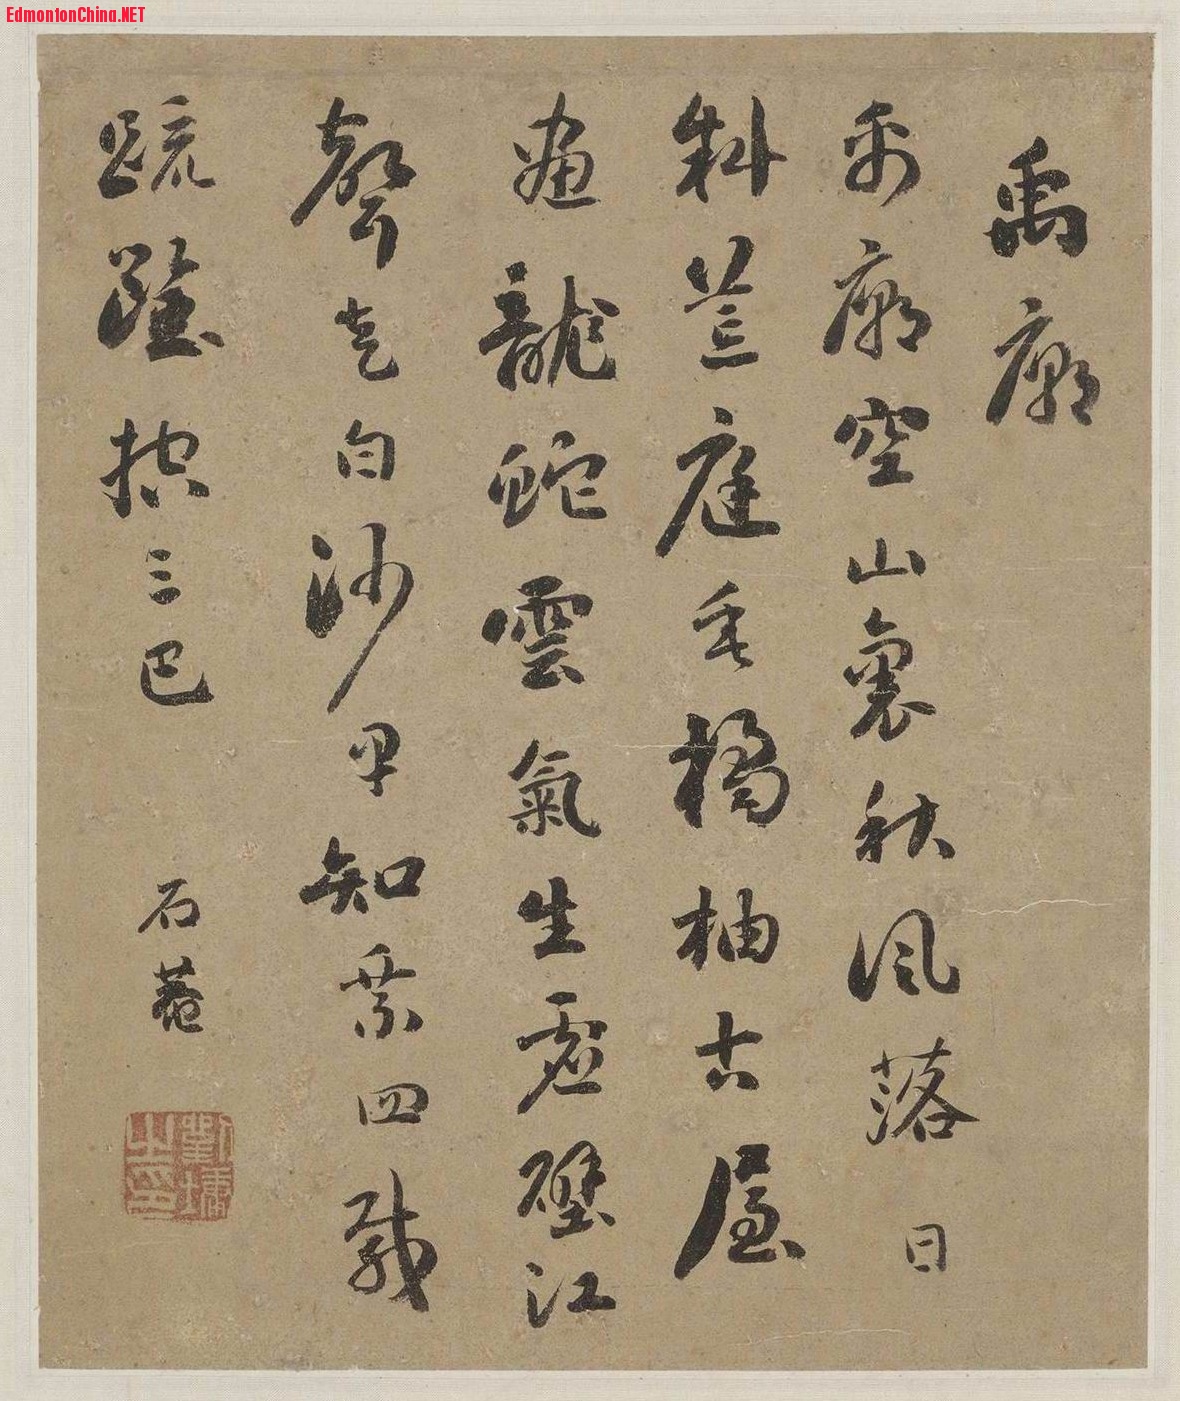 EdmontonChina.NET
禹廟
禹廟空山裏秋風落日
斜荒庭垂橘柚古屋
畫龍蛇雲氣生虛壁江
聲走白沙早知乘四載
疏鑿控三巴
石菴
劉墉之印